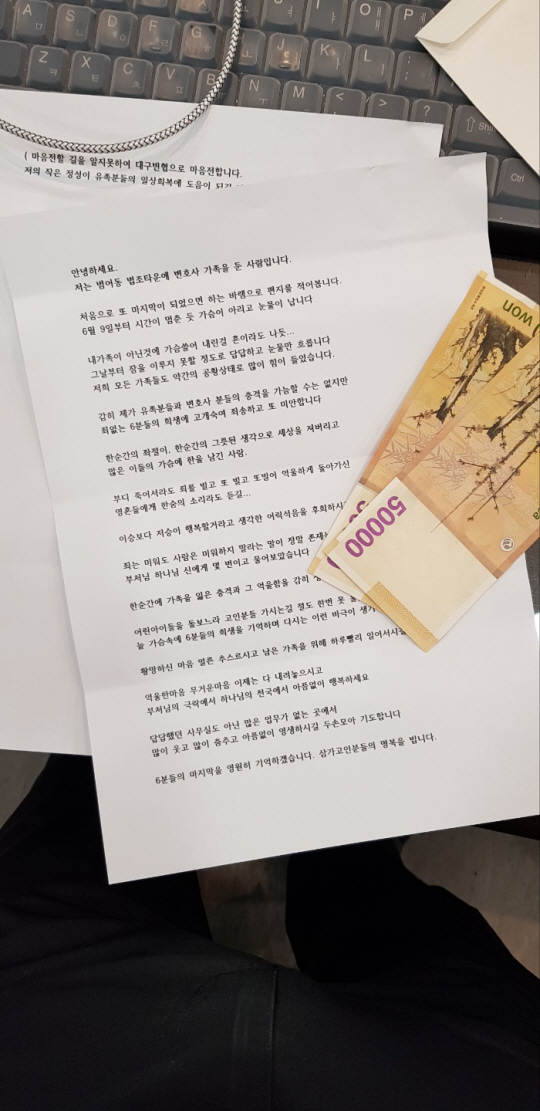 A
ㅁ
S
ㄴ
D
F
ㄹ
G
J
K
L
O
P
Z
ㅋ
X
ㅌ
C
ㅊ
V
B
N
ㅜ
M
ㅡ
<
>
?
Shi
Ctrl
( 마음전할 길을 알지못하여 대구변협으로 마음전합니다.
저의 작은 정성이 유족분들의 일상회복에 도움이 되길
안녕하세요.
저는 범어동 법조타운에 변호사 가족을 둔 사람입니다.
처음으로 또 마지막이 되었으면 하는 바램으로 편지를 적어봅니다.
6월 9일부터 시간이 멈춘 듯 가슴이 아리고 눈물이 납니다
내가족이 아닌것에 가슴쓸어 내린걸 혼이라도 나듯...
그날부터 잠을 이루지 못할 정도로 답답하고 눈물만 흐릅니다
저희 모든 가족들도 약간의 공황상태로 많이 힘이 들었습니다.
감히 제가 유족분들과 변호사 분들의 충격을 가늠할 수는 없지만
죄없는 6분들의 희생에 고개숙여 죄송하고 또 미안합니다
한순간의 좌절이, 한순간의 그릇된 생각으로 세상을 져버리고
많은 이들의 가슴에 한을 남긴 사람.
부디 죽어서라도 죄를 빌고 또 빌고 또빌어 억울하게 돌아가신
영혼들에게 한숨의 소리라도 듣길...
이승보다 저승이 행복할거라고 생각한 어리석음을 후회하시
죄는 미워도 사람은 미워하지 말라는 말이 정말 존재
부처님 하나님 신에게 몇 번이고 물어보았습니다
한순간에 가족을 잃은 충격과 그 억울함을 감히
어린아이들을 돌보느라 고인분들 가시는길 절도 한번 못
늘 가슴속에 6분들의 희생을 기억하며 다시는 이런 비극이 생기
황망하신 마음 얼른 추스르시고 남은 가족을 위해 하루빨리 일어서시길
억울한마음 무거운마음 이제는 다 내려놓으시고
부처님의 극락에서 하나님의 천국에서 아픔없이 행복하세요
답답했던 사무실도 아닌 많은 업무가 없는 곳에서
많이 웃고 많이 춤추고 아픔없이 영생하시길 두손모아 기도합니다
6분들의 마지막을 영원히 기억하겠습니다. 삼가고인분들의 명복을 빕니다.
won
50000